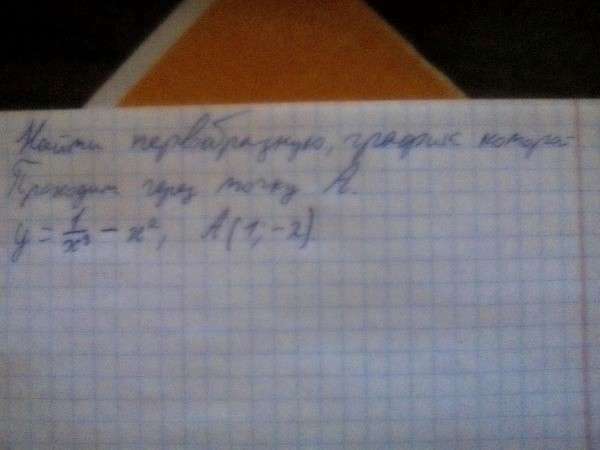 Найти первобразную, график которой
Проходит через точку A.
y = 1/x³ - x², A(1,-2)